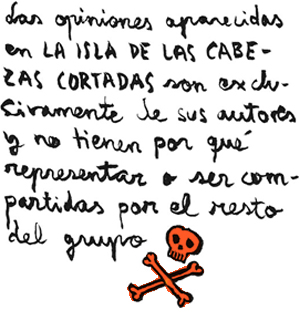 Las opiniones aparecidas
en LA ISLA DE LAS CABE-
ZAS CORTADAS son exclu-
sivamente de sus autores
y no tienen por qué
representar o ser com-
partidas por el resto
del grupo